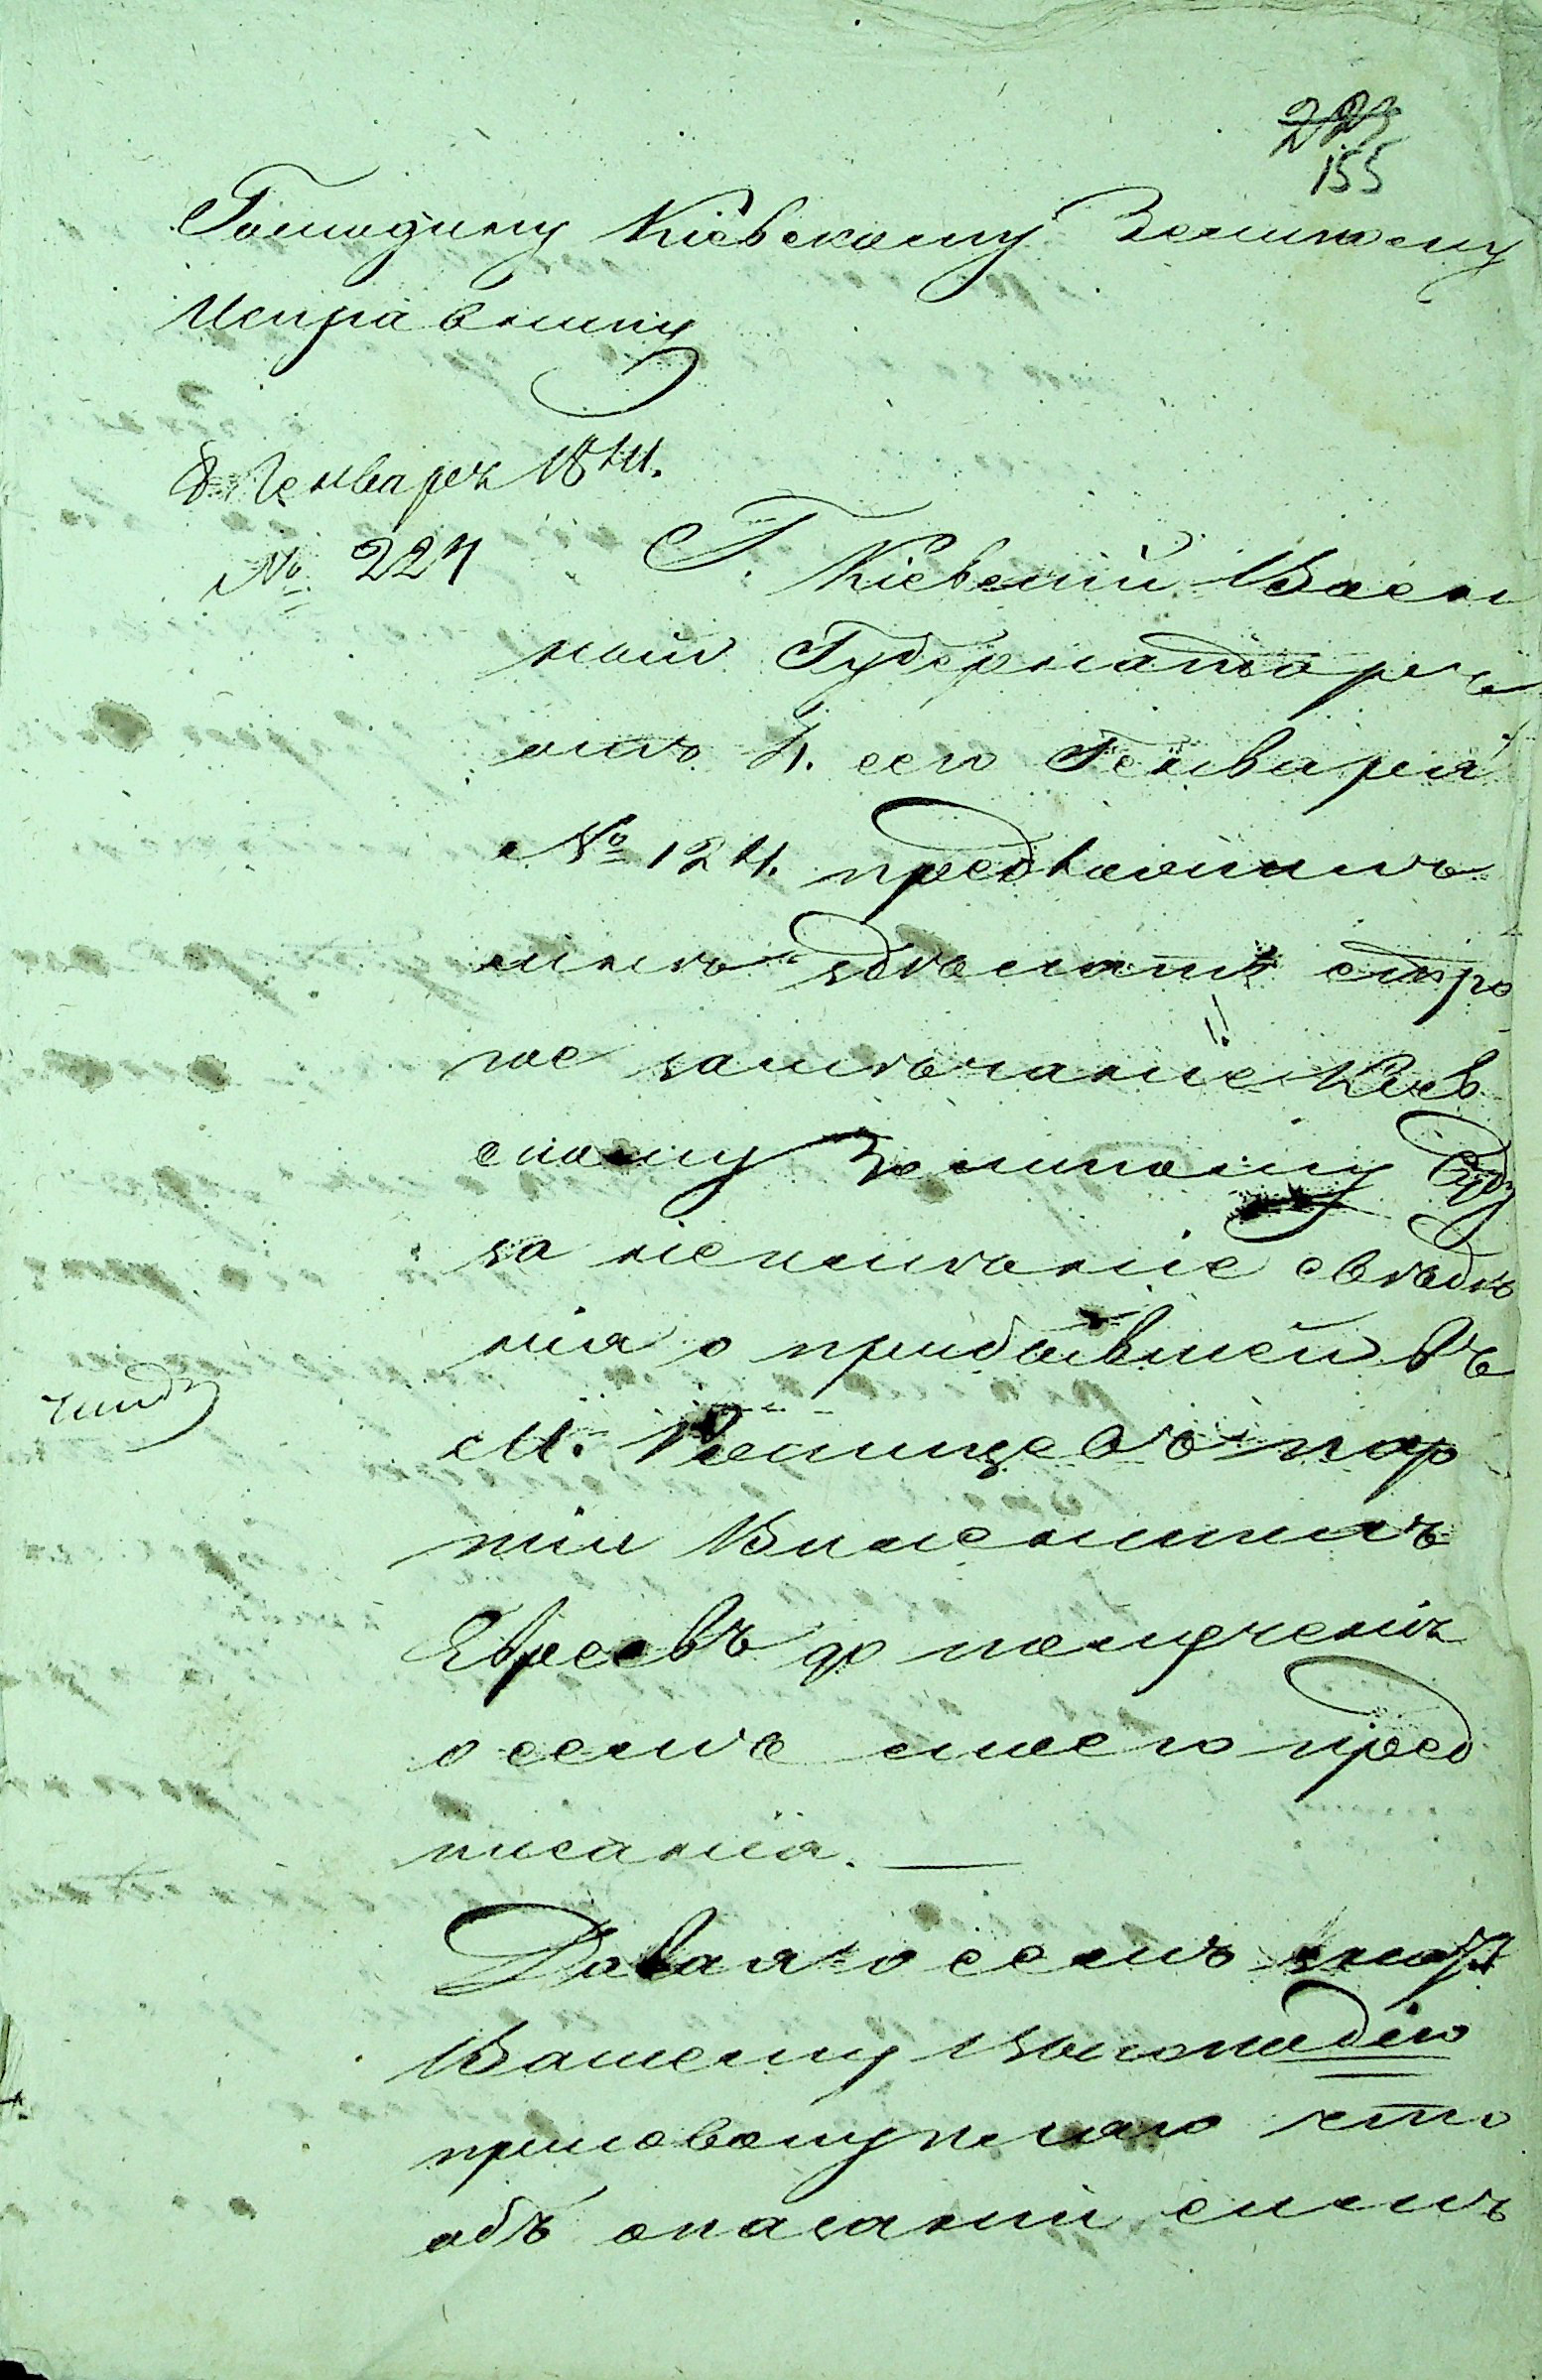 223
155
Господину Кіевскому Земскому
Исправнику
8 Генваря 1841.
№ 224
Г. Кіевскій Воен
ный Губернаторъ
отъ 4. сего Генваря
№ 124. предложилъ
мнѣ здѣлать стро
гое замѣчаніе Кіев
скому Земскому Суду
за неимѣніе свѣдѣ
нія о прибывшей въ
М. пар
тіи Виленскихъ
Евреевъ до полученія
о семъ моего пред
писанія.
Давая о семъ знать
Вашему Высокоблдію
присовокупляю что
объ оказаніи симъ